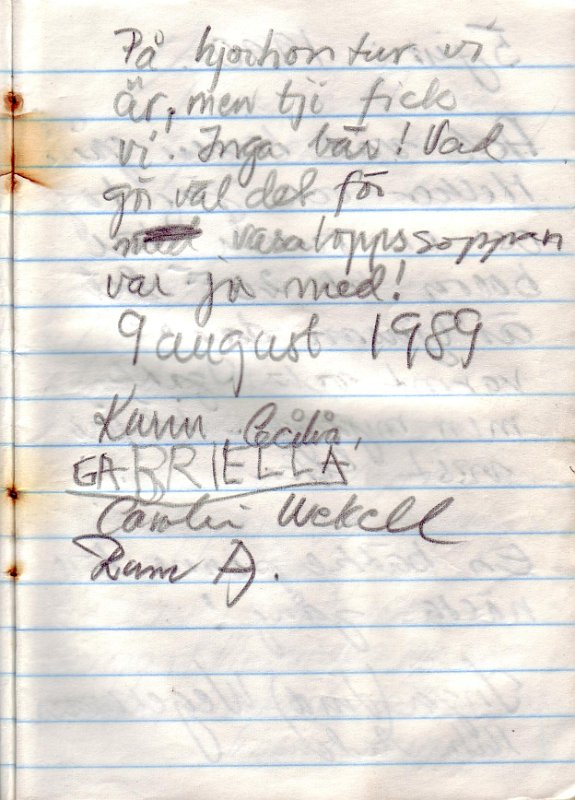 På hjortrontur vi
är, men tji fick
vi! Inga bär! Vad
gör väl det för
vasaloppssoppan
var ju med!
9 august 1989
Karin Cecilia,
GABRIELLA
Carolin
A.